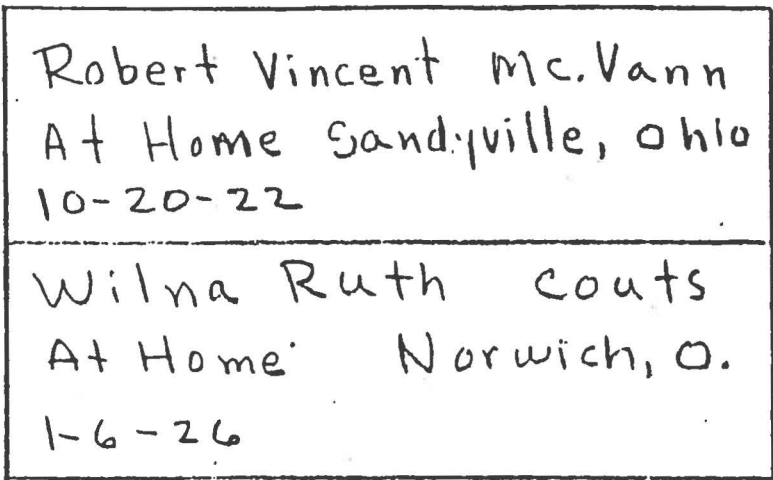 Robert Vincent Mc.Vann
At Home Sandyville, Ohio
10-20-22
Wilna Ruth Couts
At Home Norwich, O.
1-6-26